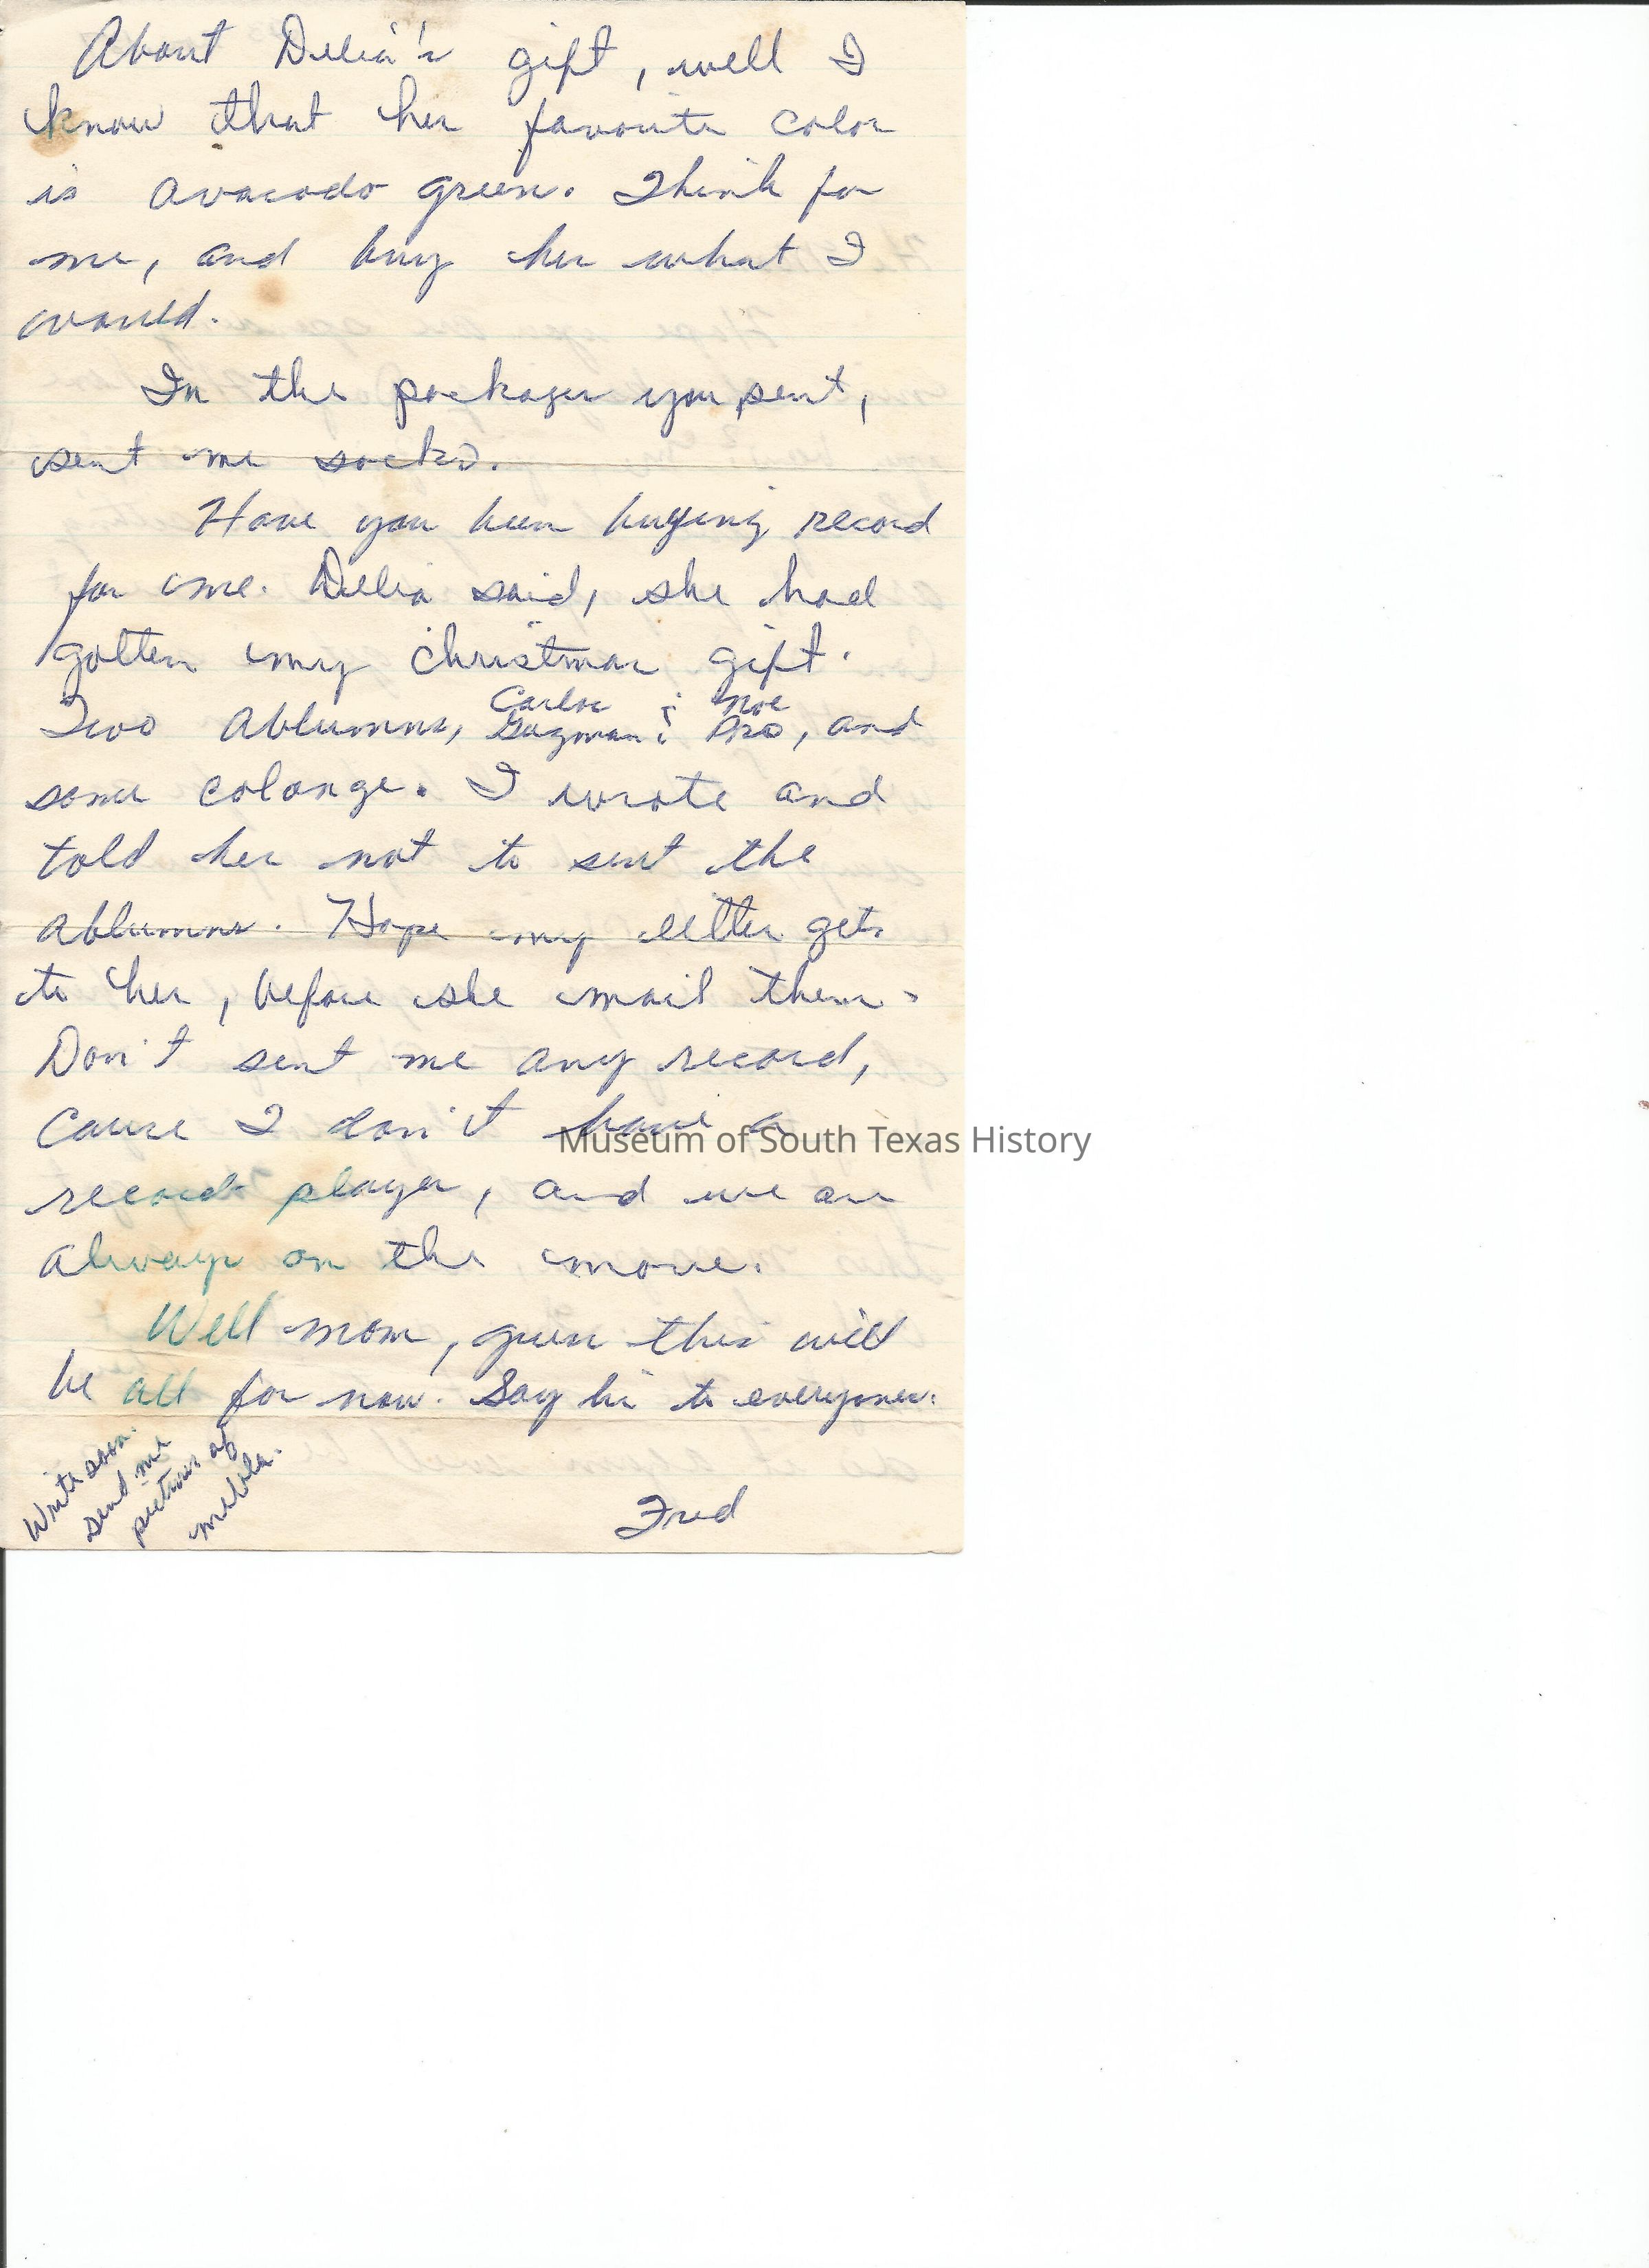 About Delia's gift, well I
know that her favorite color
is avacodo green. Think for
me, and buy her what I
would.
In the packages you sent,
sent me socks.
Have you been buying record
for me. Delia said, she had
gotten my christmas gift.
Two Ablumns, Carlos Guzman & Noe Pro, and
some colonge. I wrote and
told her not to sent the
ablumns. Hope my letter gets
to her, before she mail them.
Don't sent me any record,
cause I don't have a
Museum of South Texas History
record player, and we are
always on the move.
Well mom, guess this will
be all for now. Say hi to everyone.
Write soon.
send me
pictures of
melba.
Fred